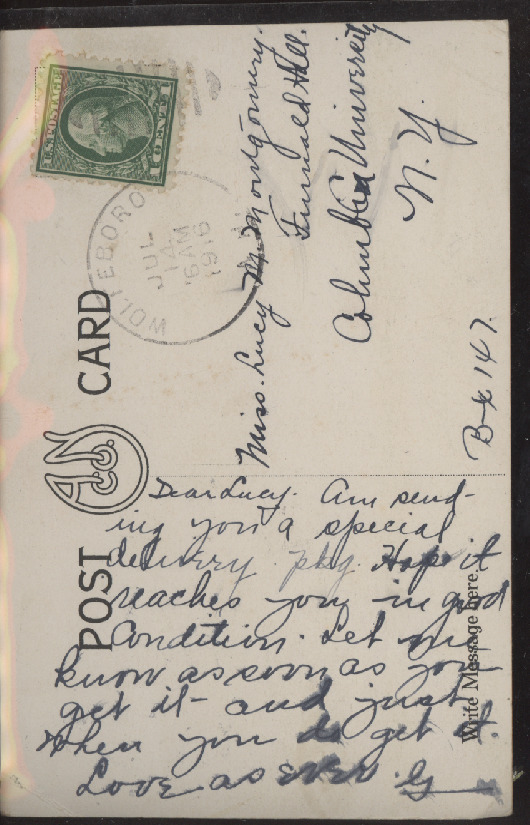 U.S. POSTAGE
WOLFEBORO
JUL
14
6 AM
1916
POST CARD
Miss. Lucy M. Montgomery.
Furnald Hall.
Columbia University
N. Y.
Bx 147.
Write Message here.
Dear Lucy. Am send-
ing you a special
delivery pkg. Hope it
reaches you in good
Condition. Let me
know as soon as you
get it - and just
when you do get it.
Love as ever. G